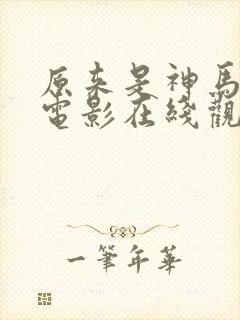 原来是神馬
電影在綫觀
一筆年華